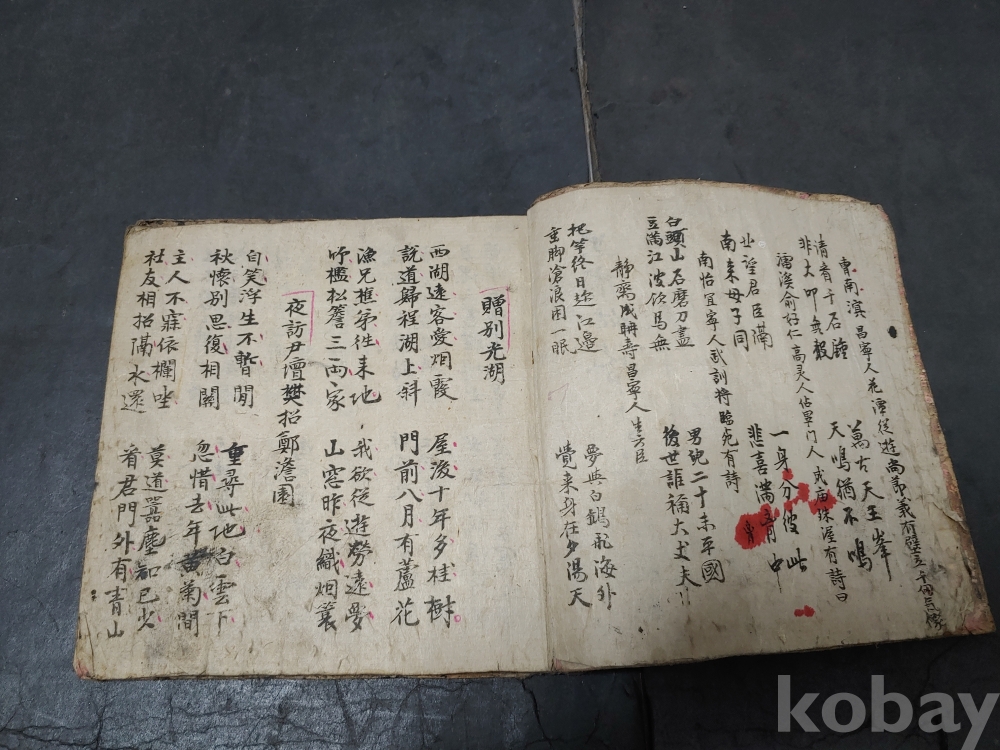 曺南溟 昌寧人 花潭從遊 尚節義 有壁立千仞氣像
請看千石鍾 萬古天王峯
非大叩無聲 天鳴猶不鳴
濡溪俞好仁 高灵人 佔畢門人 成庙珠渥有詩曰
北望君臣隔 一身分彼此
南来母子同 悲喜滿 中
南怡宜寧人武訓將臨死有詩
白頭山石磨刀盡 男兒二十未平國
豆滿江波飲馬無 後世誰稱大丈夫
靜窩成聃壽昌寧人 生六臣
把竿終日趂江邊 夢與白鷗飛海外
垂脚滄浪困一眠 覺来身在夕陽天
贈別光湖
西湖遠客愛烟霞 屋後十年多桂樹
說道歸程湖上斜 門前八月有蘆花
漁兄樵弟往来地 我欲從遊勞遠夢
檻松簷三兩家 山窓昨夜織烟蓑
夜訪尹壇樊招鄭澹園
自笑浮生不暫閒 重尋此地白雲下
秋懷別思復相關 忽惜去年黃菊間
主人不寐依欄坐 莫道囂塵知已少
社友相招隔水還 看君門外有青山
kobay